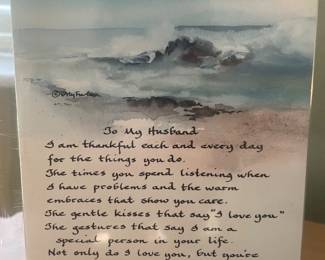 To My Husband
I am thankful each and every day
for the things you do.
The times you spend listening when
I have problems and the warm
embraces that show you care.
The gentle kisses that say "I love you"
The gestures that say I am a
special person in your life.
Not only do I love you, but you're